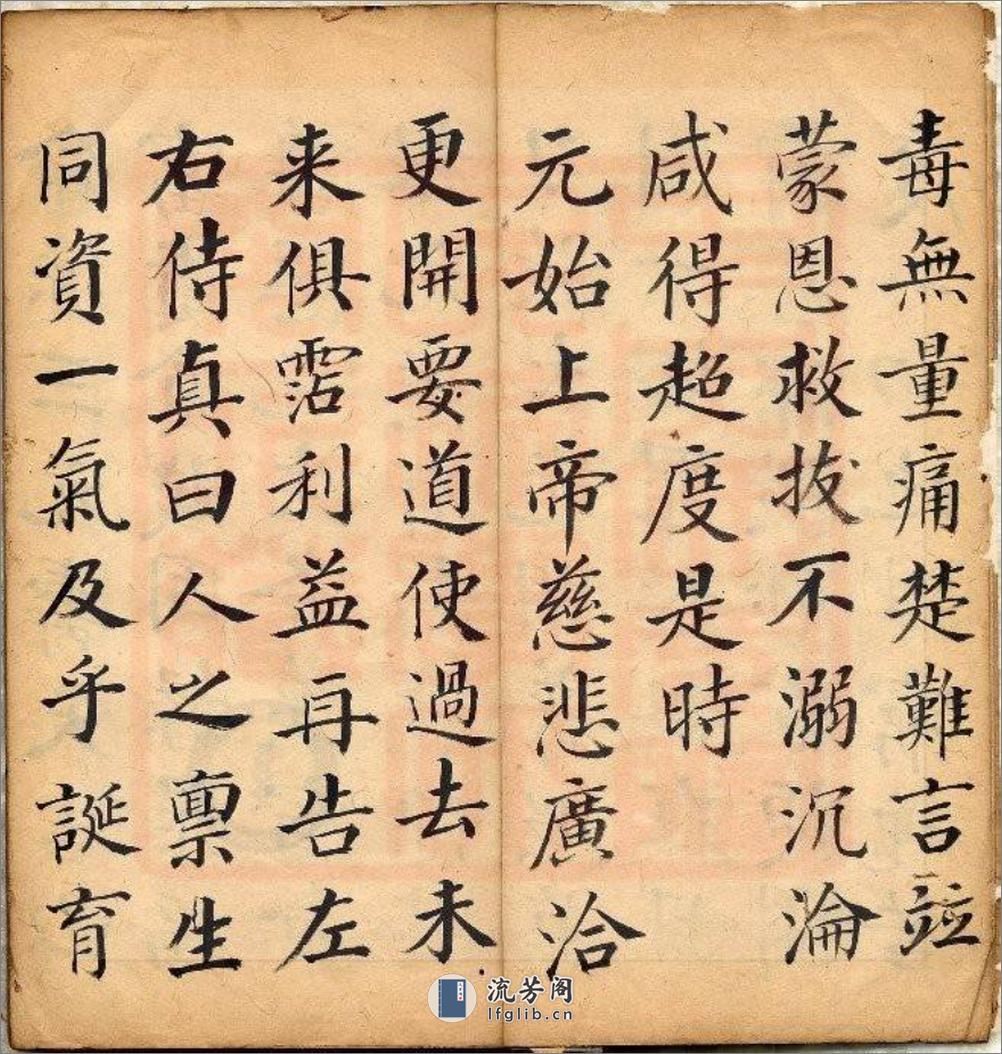 毒無量痛楚難言竝
蒙恩救拔不溺沉淪
咸得超度是時
元始上帝慈悲廣洽
更開要道使過去未
来俱霑利益再告左
右侍真曰人之禀生
同資一氣及乎誕育
流芳阁
lfglib.cn